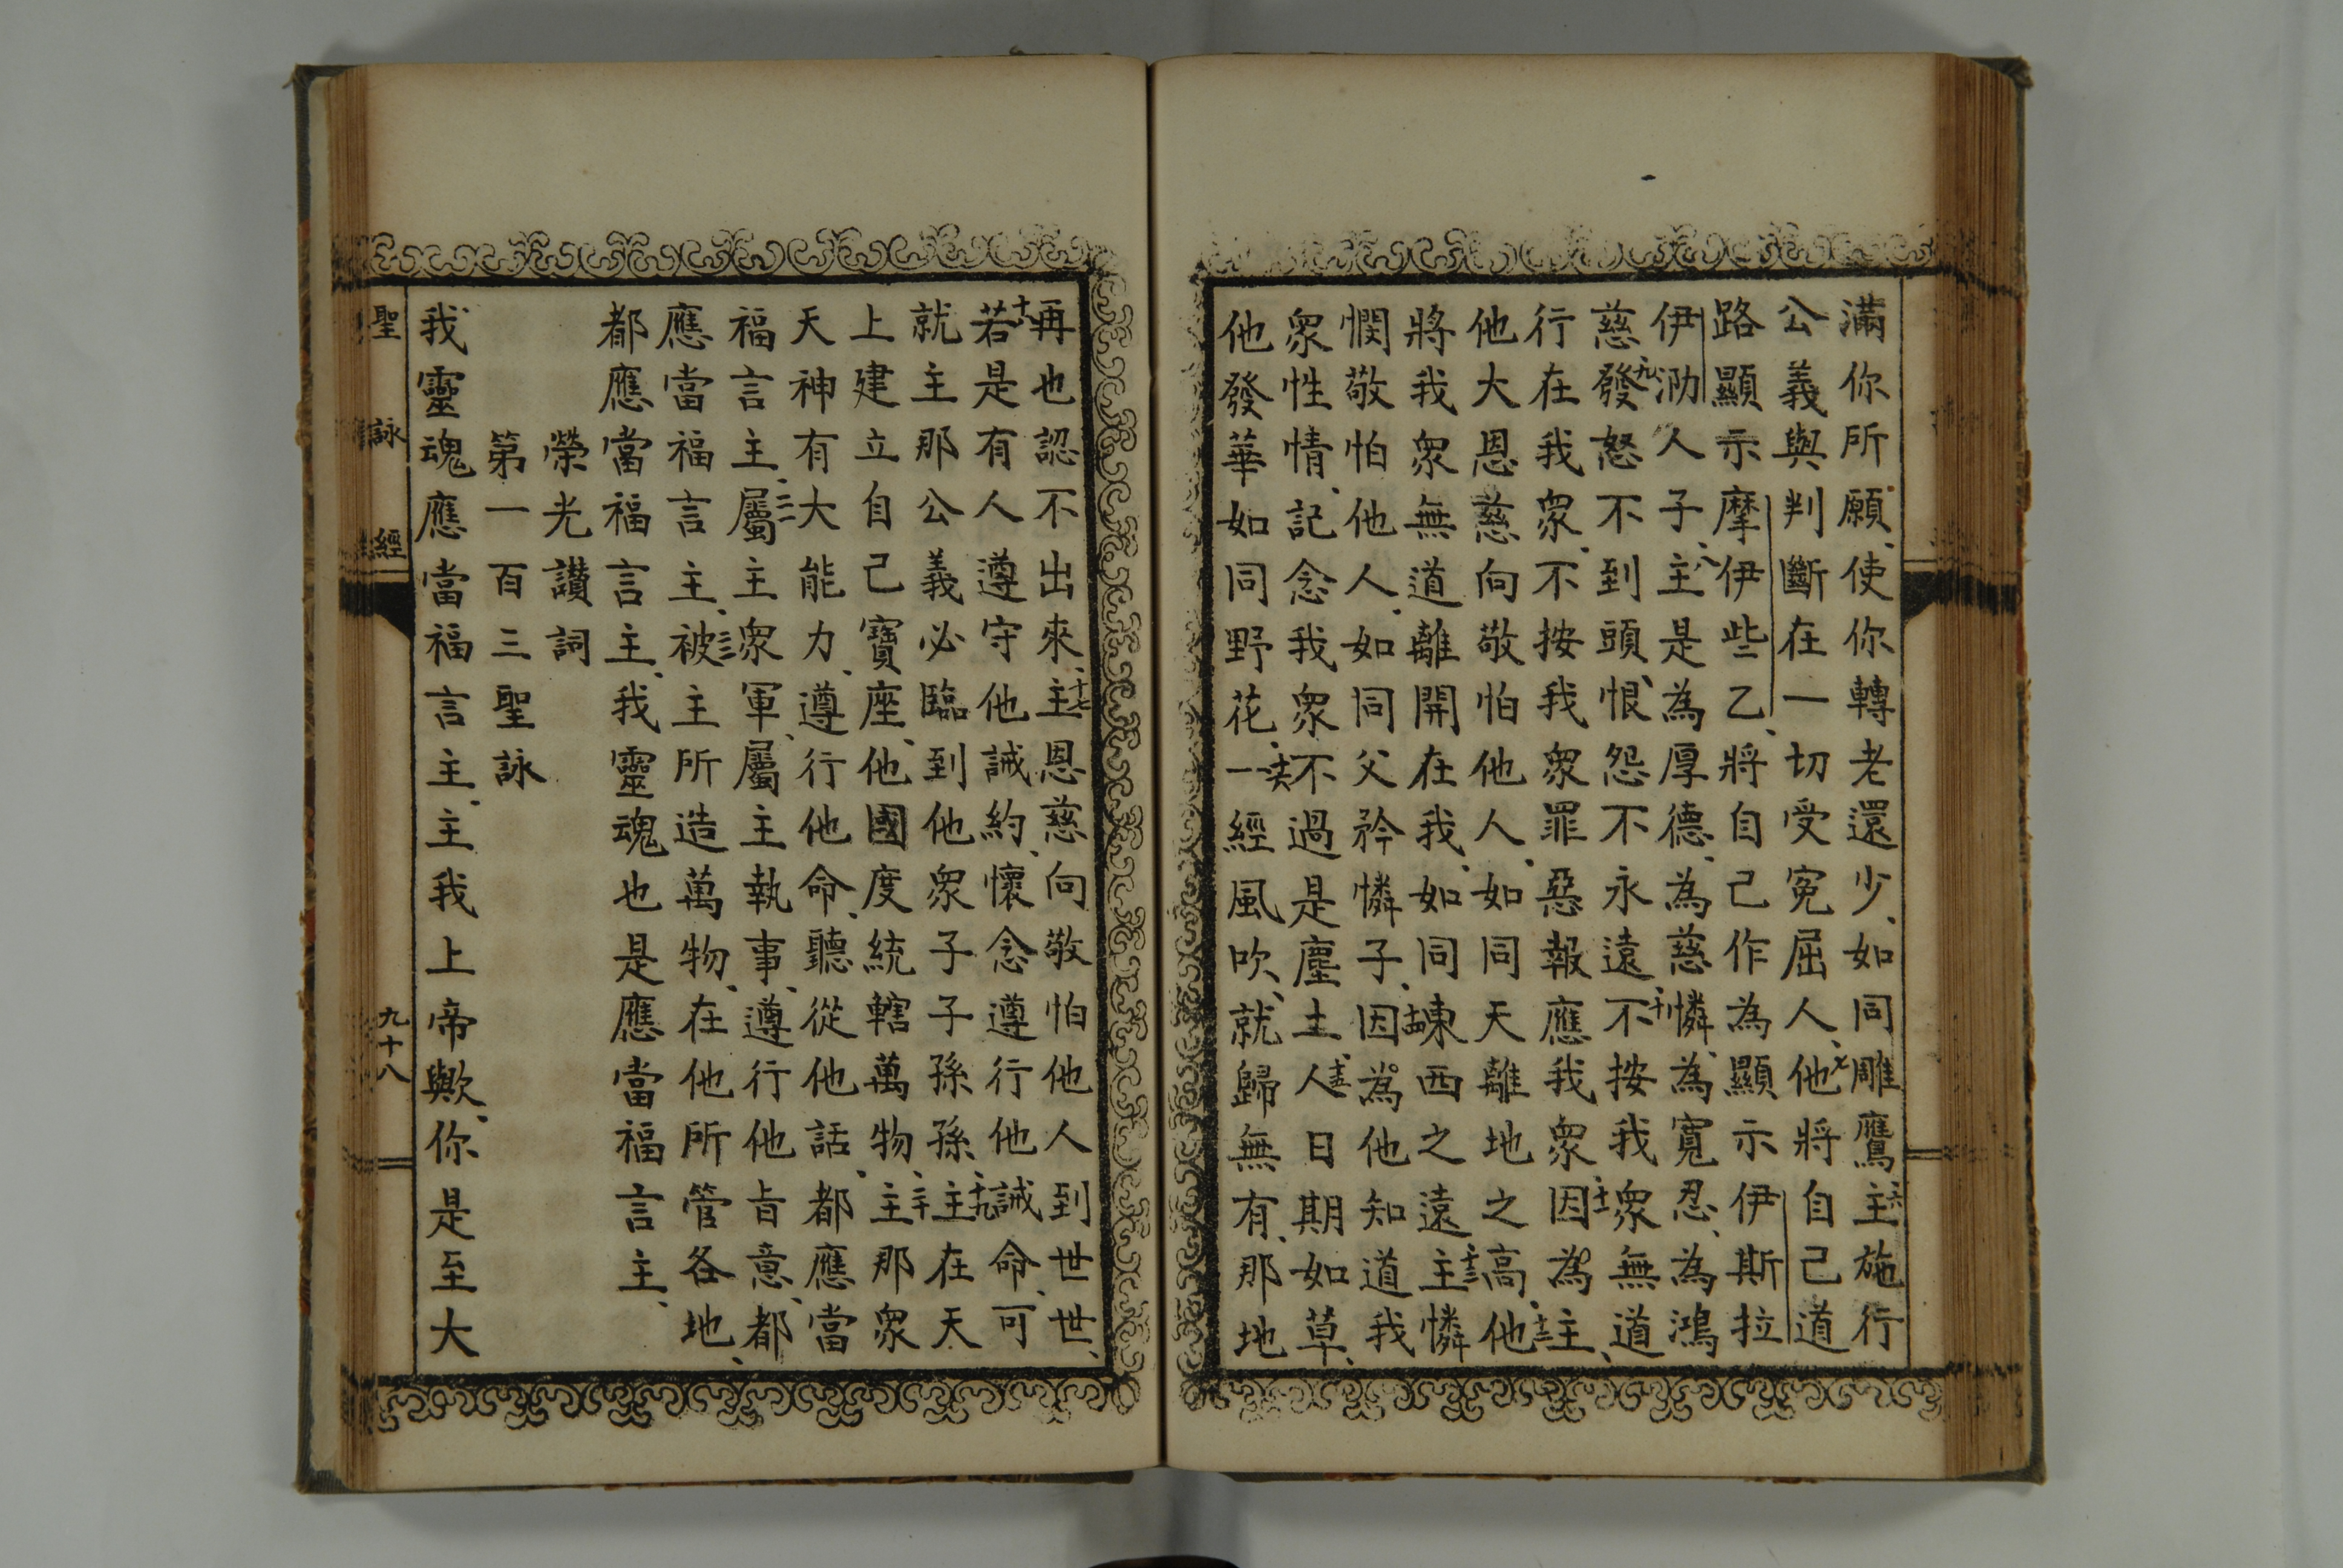 滿你所願、使你轉老還少、如同雕鷹、六主施行
公義與判斷在一切受寃屈人、七他將自己道
路顯示摩伊些乙、將自己作為顯示伊斯拉
伊泐人子、八主是為厚德、為慈憐、為寬忍、為鴻
慈、九發怒不到頭、恨怨不永遠、十不按我衆無道
行在我衆、不按我衆罪惡報應我衆、十一因為主、
他大恩慈向敬怕他人、如同天離地之高、十二他
將我衆無道離開在我、如同東西之遠、十三主憐
憫敬怕他人、如同父矜憐子、十四因為他知道我
衆性情、記念我衆不過是塵土、十五人日期如草、
他發華如同野花、十六一經風吹、就歸無有、那地
再也認不出來、十七主恩慈向敬怕他人到世世、
十八若是有人遵守他誡約、懷念遵行他誡命、可
就主那公義必臨到他衆子子孫孫、十九主在天
上建立自己寶座、他國度統轄萬物、二十主那衆
天神有大能力、遵行他命、聽從他話、都應當
福言主、二一屬主衆軍、屬主執事、遵行他旨意、都
應當福言主、二二被主所造萬物、在他所管各地、
都應當福言主、我靈魂也是應當福言主、
榮光讚詞
第一百三聖詠
我靈魂應當福言主、主我上帝歟、你是至大
聖詠經
九十八